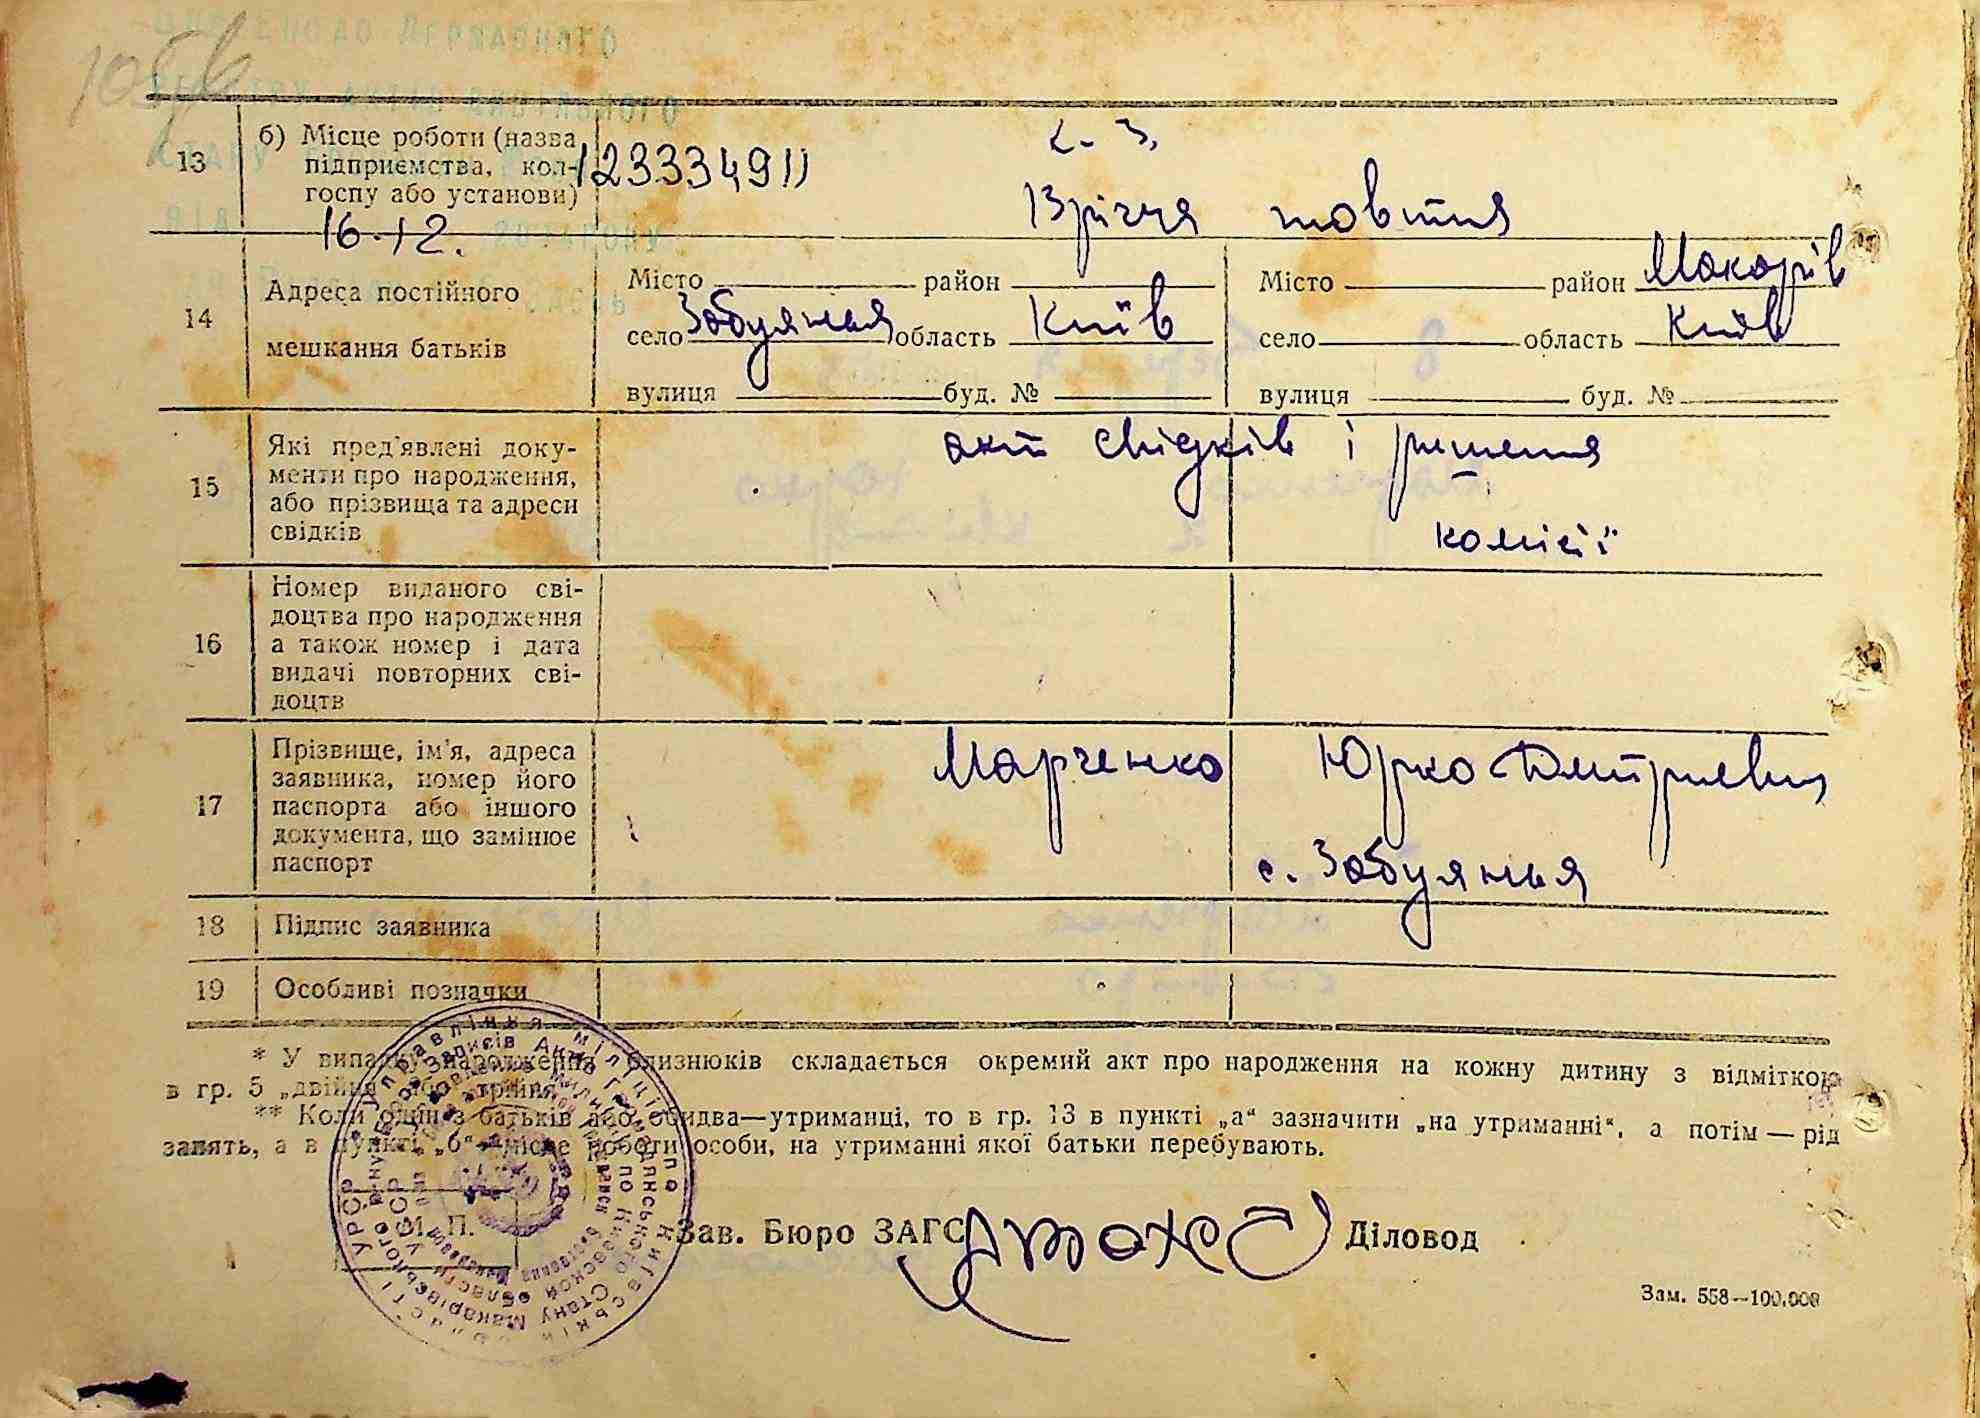 13
б) Місце роботи (назва
підприємства, кол-
госпу або установи)
16.12.
к. з.
13річчя жовтня
14
Адреса постійного
мешкання батьків
Місто район
село Забуяння область Київ
вулиця буд. №
Місто район Макарів
село область Київ
вулиця буд. №
15
Які пред'явлені доку-
менти про народження,
або прізвища та адреси
свідків
акт свідків і решення
комісії
16
Номер виданого сві-
доцтва про народження
а також номер і дата
видачі повторних сві-
доцтв
17
Прізвище, ім'я, адреса
заявника, номер його
паспорта або іншого
документа, що замінює
паспорт
Марченко Юрко Дмитриевич
с. Забуянья
18
Підпис заявника
19
Особливі позначки
* У випадку народження близнюків складається окремий акт про народження на кожну дитину з відміткою
в гр. 5 „двійня" або „трійня"
** Коли один з батьків або обидва—утриманці, то в гр. 13 в пункті „а“ зазначити „на утриманні“, а потім — рід
занять, а в пункті „б“ – місце роботи особи, на утриманні якої батьки перебувають.
М. П.
Зав. Бюро ЗАГС Діловод
Зам. 558—100.000